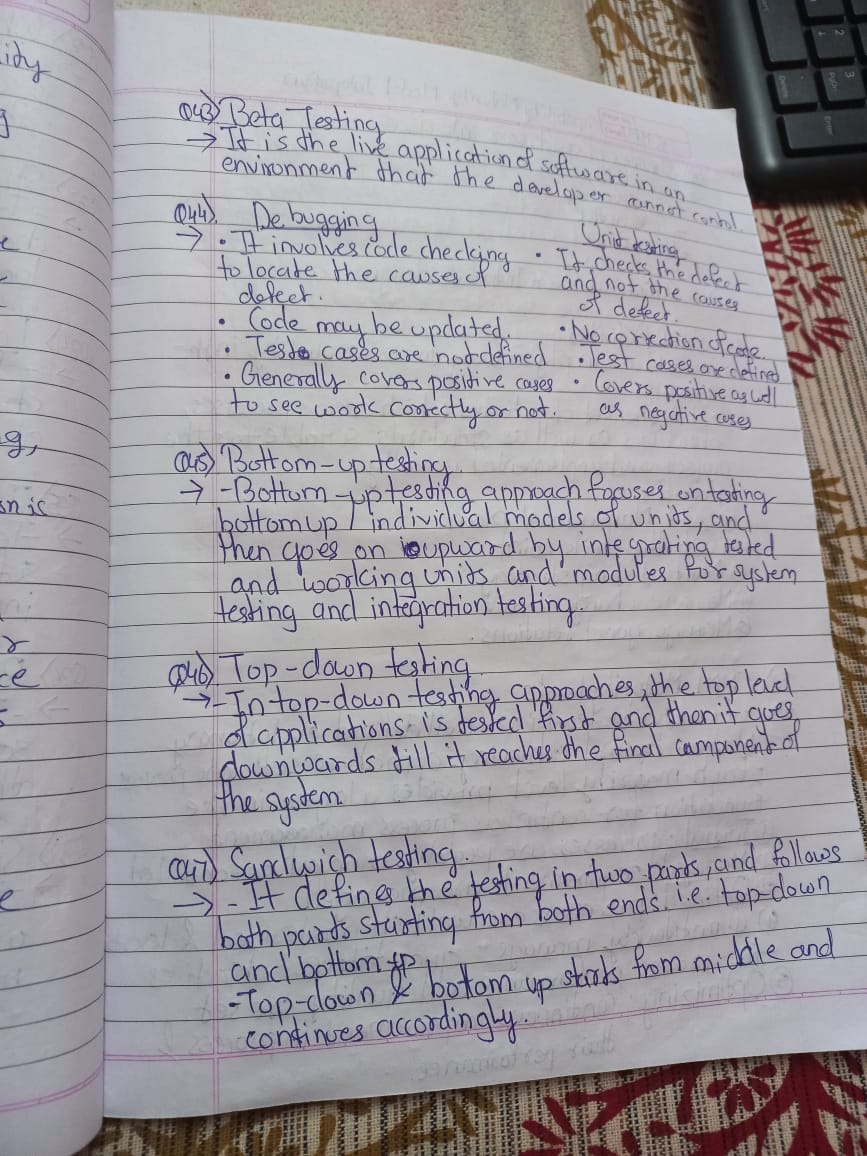 idy
g
Q43) Beta Testing
→ It is the live application of software in an
environment that the developer cannot control.
Q44) Debugging
Unit testing
→ • It involves code checking
to locate the causes of
defect.
• Code may be updated.
• Test cases are not defined
• Generally covers positive cases
to see work correctly or not.
• It checks the defect
and not the causes
of defect.
• No correction of code.
• Test cases are defined
• Covers positive as well
as negative cases
g,
n is
Q45) Bottom-up testing
→ - Bottom-up testing approach focuses on testing
bottom up / individual models of units, and
then goes on upward by integrating tested
and working units and modules for system
testing and integration testing.
r
ce
Q46) Top-down testing
→ - In top-down testing approaches, the top level
of applications is tested first and then it goes
downwards till it reaches the final component of
the system.
e
Q47) Sandwich testing.
→ - It defines the testing in two parts, and follows
both parts starting from both ends. i.e. top-down
and bottom up
- Top-down & bottom up starts from middle and
continues accordingly.